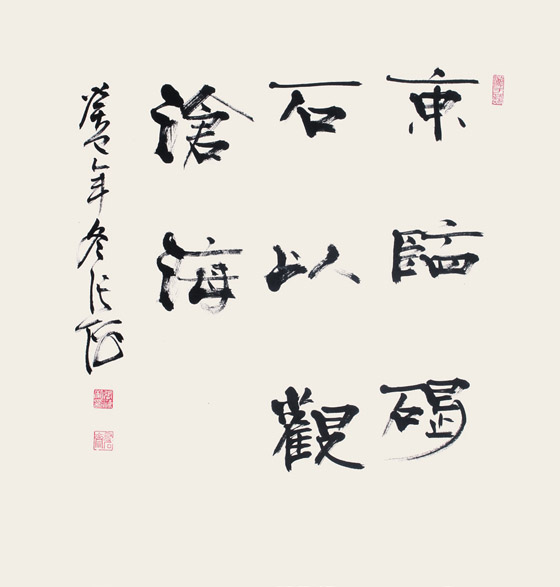 東臨碣
石以觀
滄海
癸巳年冬